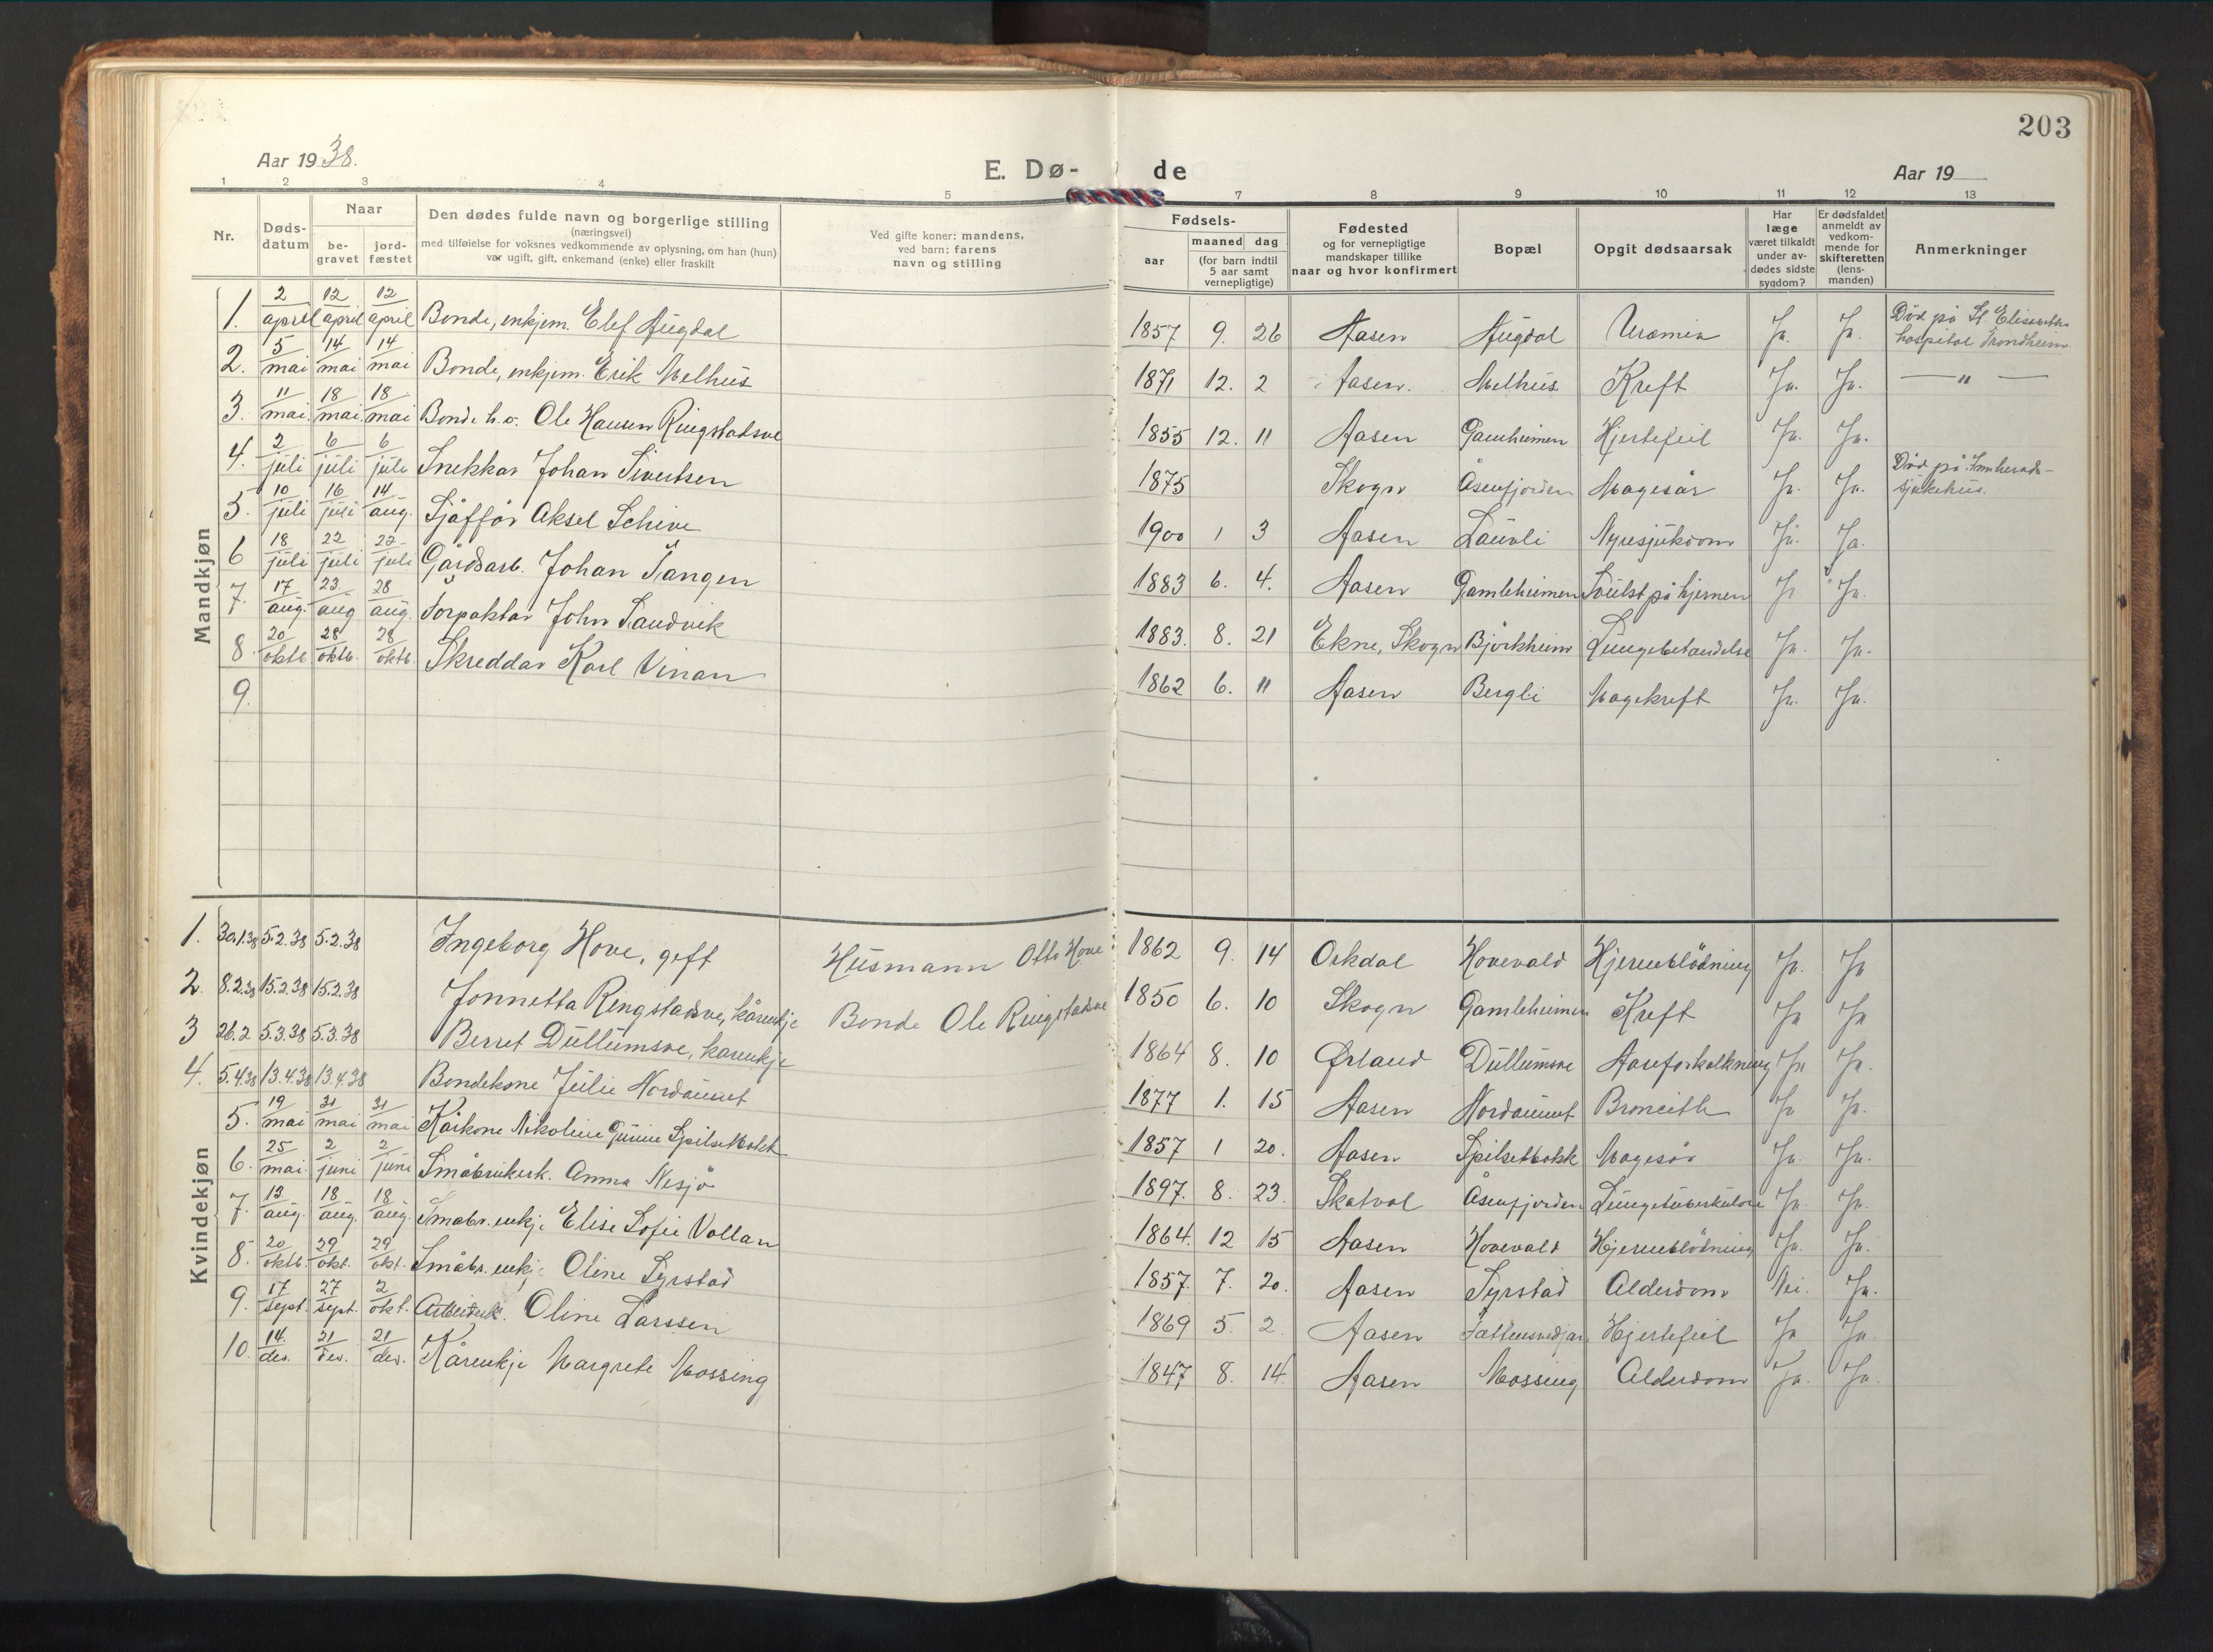 203
Aar 1938.
E. Dø- de
Aar 19
1 2 3 4 5 7 8 9 10 11 12 13
Nr.
Døds-
datum
Naar
be-
gravet
jord-
fæstet
Den dødes fulde navn og borgerlige stilling
(næringsvei)
med tilføielse for voksnes vedkommende av oplysning, om han (hun)
var ugift, gift, enkemand (enke) eller fraskilt
Ved gifte koner: mandens,
ved barn: farens
navn og stilling
Fødsels-
aar
maaned dag
(for barn indtil
5 aar samt
vernepligtige)
Fødested
og for vernepligtige
mandskaper tillike
naar og hvor konfirmert
Bopæl
Opgit dødsaarsak
Har
læge
været tilkaldt
under av-
dødes sidste
sygdom?
Er dødsfaldet
anmeldt av
vedkom-
mende for
skifteretten
(lens-
manden)
Anmerkninger
Mandkjøn
1. 2/april 12/april 12/april Bonde, enkjem. Elef Augdal 1857 9. 26 Aasen Augdal Uremia Ja. Ja. Død på St. Elisabeths hospital Trondheim
2. 5/mai 14/mai 14/mai Bonde, enkjem. Erik Melhus 1871 12. 2 Aasen. Melhus Kreft Ja. Ja. — " —
3. 11/mai 18/mai 18/mai Bonde Ole Hansen Ringstadsve 1855 12. 11 Aasen Gamheimen Hjertefeil Ja. Ja.
4. 2/juli 6/juli 6/juli Snekkar Johan Sivertsen 1875 Skogn Åsenfjorden Magesår Ja. Ja. Død på Innherads-sjukehus.
5. 10/juli 16/juli 14/aug. Sjåffør Aksel Schive 1900 1 3 Aasen Lauvli Nyresjukdom Ja. Ja.
6 18/juli 22/juli 22/juli Gårdsarb. Johan Tangen 1883 6. 4. Aasen Gamleheimen Svulst på hjernen Ja Ja.
7. 17/aug. 23/aug 28/aug. Forpaktar John Sandvik 1883. 8. 21 Ekne, Skogn Bjørkheim Lungebetændelse Ja. Ja.
8 20/oktb. 28/oktb. 28/oktb. Skreddar Karl Vinan 1862 6. 11 Aasen Bergli Magekreft Ja. Ja.
9.
Kvindekjøn
1. 30.1.38 5.2.38 5.2.38 Ingeborg Hove, gift Husmann Otto Hove 1862 9. 14 Orkdal Hovevald Hjerneblødning Ja. Ja
2. 8.2.38 15.2.38 15.2.38 Jonnetta Ringstadsve, kårenkje Bonde Ole Ringstadsve 1850 6. 10 Skogn Gamleheimen Kreft Ja Ja
3 26.2 5.3.38 5.3.38 Berret Dullumsve, kårenkje 1864 8. 10 Ørland Dullumsve Aareforkalkning Ja Ja.
4. 5.4.38 13.4.38 13.4.38 Bondekone Julie Nordaunet 1877 1. 15 Aasen Nordaunet Broncith Ja Ja.
5. 19/mai 31/mai 31/mai Kårkone Nikoline 1857 1 20. Aasen Magesår Ja. Ja.
6. 25/mai. 2/juni 2/juni Småbrukerk. Anna Nesjø 1897. 8. 23. Skatval Åsenfjorden Lungetuberkulose Ja. Ja.
7. 12/aug. 18/aug. 18/aug. Småbr. enkje Elise Sofie Vollan 1864. 12 15 Aasen Hovevald Hjerneblødning Ja. Ja.
8. 20/oktb. 29/okt. 29/okt. Småbr. enkje Oline Syrstad 1857. 7. 20. Aasen Syrstad Alderdom Nei. Ja.
9. 17/sept. 27/sept. 2/okt. Oline Larssen 1869 5. 2 Aasen Hjertefeil Ja Ja.
10. 14./des. 21/des. 21/des. Kårenkje Margrete Mossing 1847 8. 14. Aasen Mossing Alderdom Ja. Ja.